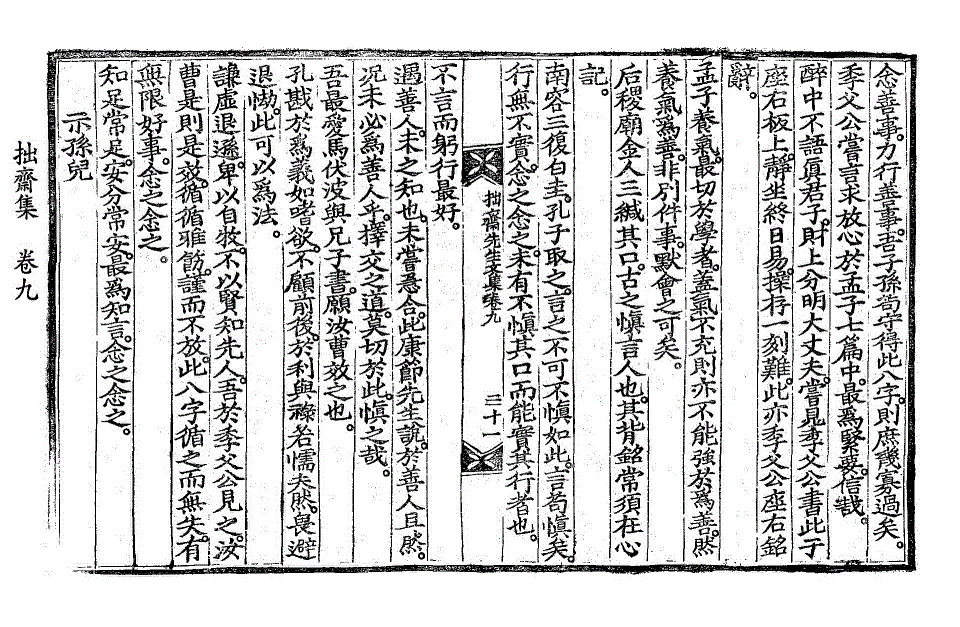 念善事。力行善事。吾子孫苟守得此八字。則庶幾寡過矣。
季父公嘗言求放心於孟子七篇中。最爲緊要。信哉。
醉中不語眞君子。財上分明大丈夫。嘗見季父公書此于
座右板上。靜坐終日易。操存一刻難。此亦季父公座右銘
辭。
孟子養氣。最切於學者。蓋氣不充則亦不能強於爲善。然
養氣爲善。非別件事。默會之可矣。
后稷廟金人三緘其口。古之愼言人也。其背銘常須在心
記。
南容三復白圭。孔子取之。言之不可不愼如此。言苟愼矣。
行無不實。念之念之。未有不愼其口而能實其行者也。
拙齋先生文集卷九
三十一
不言而躬行最好。
遇善人。未之知也。未嘗急合。此康節先生說。於善人且然。
况未必爲善人乎。擇交之道。莫切於此。愼之哉。
吾最愛馬伏波與兄子書。願汝曹效之也。
孔戡於爲義如嗜欲。不顧前後。於利與祿若懦夫然。畏避
退㤼。此可以爲法。
謙虛退遜。卑以自牧。不以賢知先人。吾於季父公見之。汝
曹是則是效。循循雅飭。謹而不放。此八字循之而無失。有
無限好事。念之念之。
知足常足。安分常安。最爲知言。念之念之。
示孫兒
拙齋集 卷九